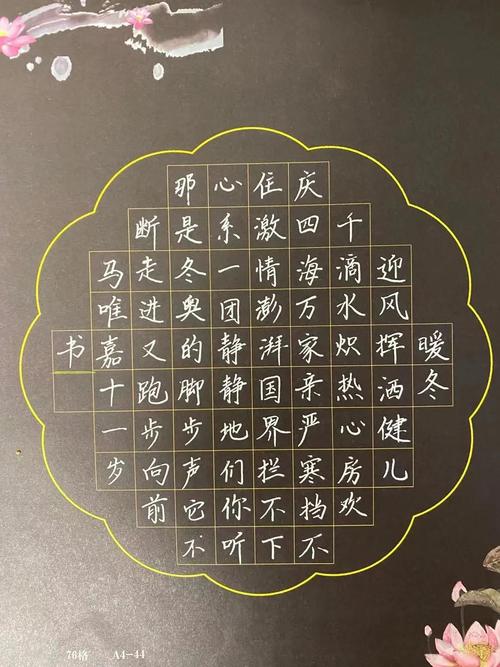 暖冬
迎风挥洒健儿
千滴水炽热心房欢
庆四海万家亲严寒挡不
住激情澎湃国界拦不下
心系一团静静地们你听
那是冬奥的脚步声它不
断走进又跑步向前
马唯嘉十一岁
书
76格 A4-44